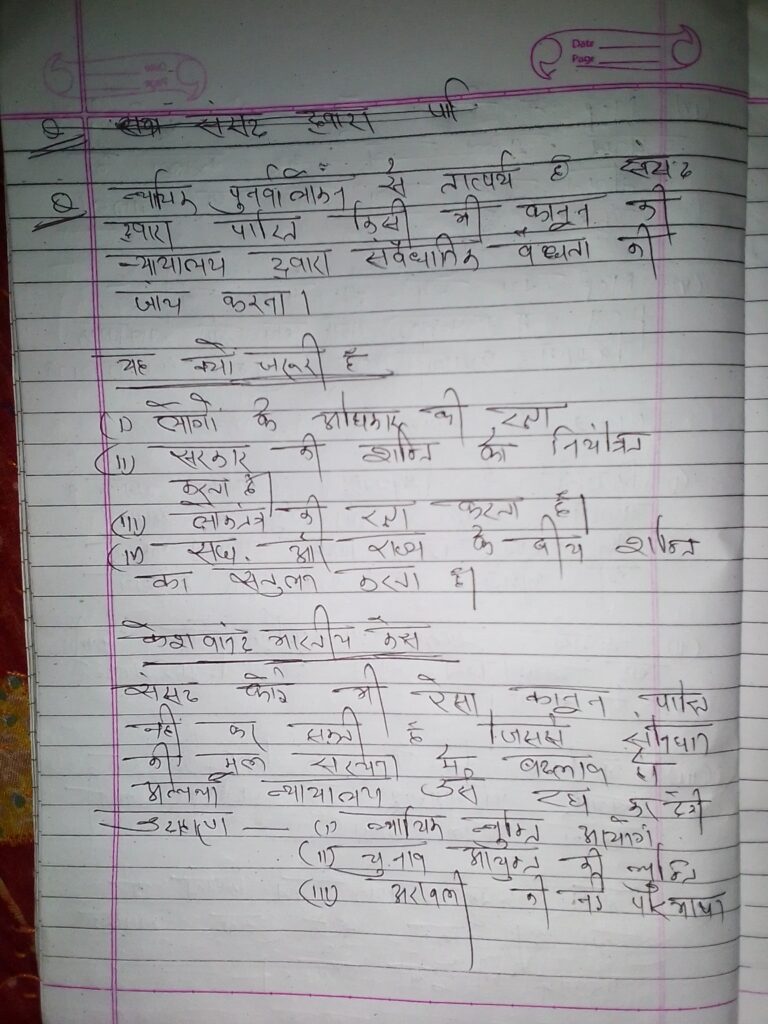 Date
Page
Q संसद द्वारा पा
Q न्यायिक पुनर्वालोकन से तात्पर्य है संसद
द्वारा पारित किसी भी कानून की
न्यायालय द्वारा संवैधानिक वैधता की
जांच करना।
यह क्यों जरूरी है
(i) लोगों के अधिकार की रक्षा
(ii) सरकार की शक्ति को नियंत्रित
करता है।
(iii) लोकतंत्र की रक्षा करता है।
(iv) संघ और राज्य के बीच शक्ति
का संतुलन करता है।
केशवानंद भारतीय केस
संसद कोई भी ऐसा कानून पारित
नहीं कर सकती है जिससे संविधान
की मूल संरचना में बदलाव हो
अन्यथा न्यायालय उसे रद्द कर देगी
उदाहरण — (i) न्यायिक न्युक्ति आयोग
(ii) चुनाव आयुक्त की न्युक्ति
(iii) अरावली की नई परिभाषा